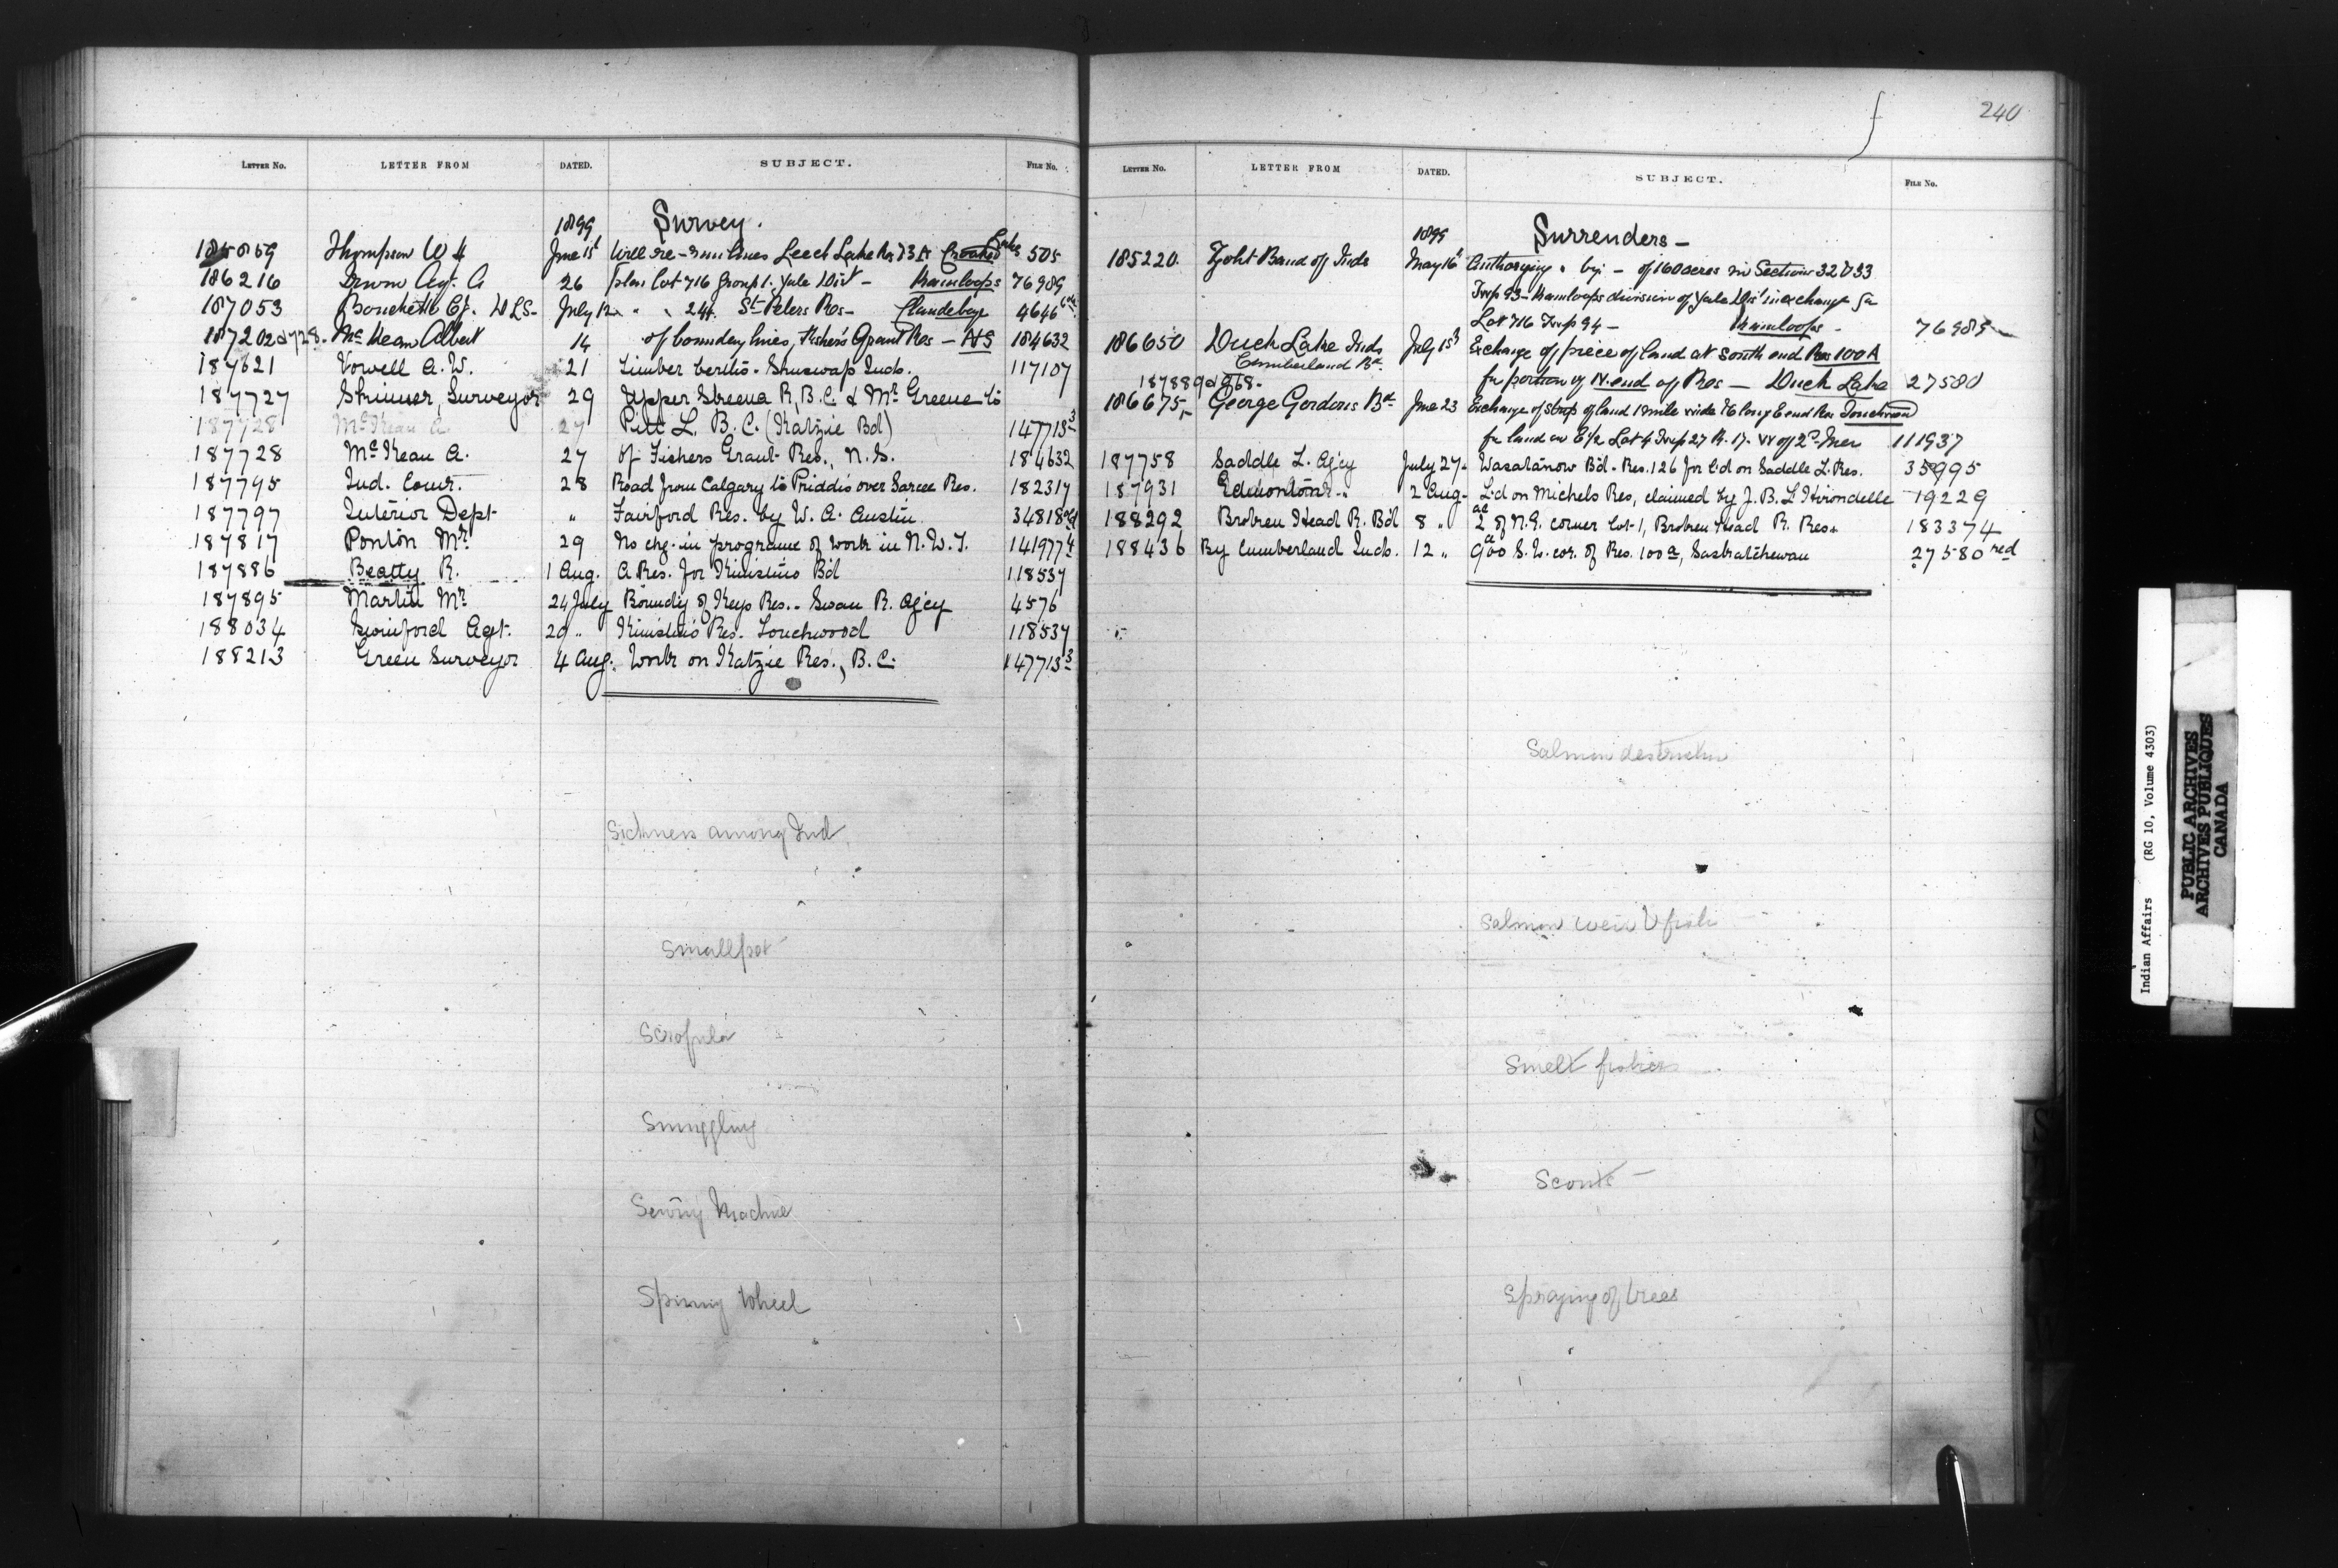 240
LETTER No. LETTER FROM DATED. SUBJECT. FILE No.
1899 Survey.
185859 Thompson W H June 15t Will re-run lines Leech Lake Res 73A Crooked Lake 505
186216 Irwin Agt. A 26 plan Lot 716 Group 1. Yale Div - Kamloops 76989
187053 Bouchette C J. DLS- July 12 " " 244. St Peters Res - Clandeboye 4646
187202 & 728. McKean Albert 14 of boundary lines, Fisher's Grant Res - NS 184632
187621 Vowell A. W. 21 Timber berths - Shuswap Inds. 117107
187727 Skinner, Surveyor 29 Upper Skeena R, B.C. & Mr Greene to
187728 McKean A. 27 Pitt L. B.C. (Katzie Bd) 147713 3
187728 McKean A. 27 of Fishers Grant Res., N.S. 184632
187795 Ind. Comr. 28 Road from Calgary to Priddis over Sarcee Res. 182317
187797 Interior Dept " Fairford Res. by W. A. Austin 34818
187817 Ponton Mr 29 No chg. in programe of work in N.W.T. 141977 4
187886 Beatty R. 1 Aug. A Res. for Kinistino Bd 118537
187895 Martin Mr 24 July Boundy of Keys Res.- Swan R. Agcy 4576
188034 Swinford Agt. 20 " Kinistino Res. Touchwood 118537
188213 Green Surveyor 4 Aug. Work on Katzie Res., B.C. 147713 3
Sickness among Ind
Smallpox
Scrofula
Smuggling
Sewing Machine
Spinning Wheel
LETTER No. LETTER FROM DATED. SUBJECT. FILE No.
1899 Surrenders -
185220. Zoht Band of Inds May 16h Authorizing " by - of 160 acres in Sections 32 & 33
Twp 93 - Kamloops division of Yale Dist in exchange for
Lot 716 Twp 94 - Kamloops - 76989
186650 Duck Lake Inds July 15h Exchange of piece of land at South end Res 100A
Cumberland Bd. for portion of N. end of Res - Duck Lake 27580
187889 & 968.
186675, George Gordons Bd June 23 Exchange of strip of land 1 mile wide & 6 long E end Res Touchwood
for land on E 1/2 Lot 4 Twp 27 R. 17. W of 2d Mer 111937
187758 Saddle L. Agcy July 27. Wasatanow Bd - Res. 126 for l'd on Saddle L. Res. 35995
187931 Edmonton " 2 Aug. L'd on Michels Res, claimed by J. B. L'Hirondelle 19229
188292 Broken Head R. Bd 8 " 2 ac of N.E. corner Lot 1, Broken Head R. Res. 183374
188436 By Cumberland Inds. 12 " 900 a S. W. cor. of Res. 100a, Saskatchewan 27580 red
Salmon destruction
Salmon weir
Smelt fisheries
Scouts
Spraying of trees
Indian Affairs (RG 10, Volume 4303)
PUBLIC ARCHIVES
ARCHIVES PUBLIQUES
CANADA